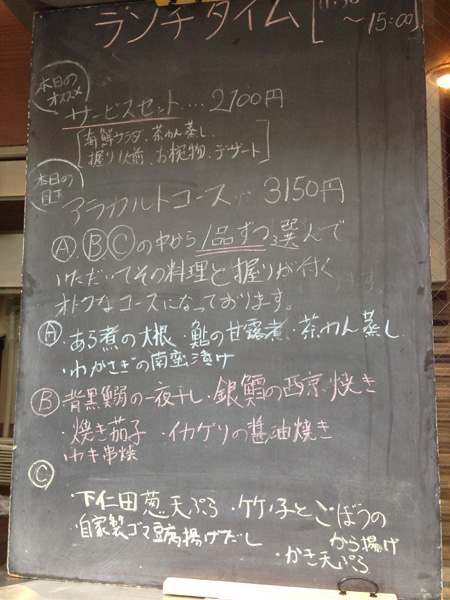 ランチタイム [11:30
～15:00]
本日の
オススメ
サービスセット…2100円
[海鮮サラダ、茶わん蒸し、
握り1人前、お椀物、デザート]
本日の
目玉
アラカルトコース…3150円
Ⓐ、Ⓑ、Ⓒの中から1品ずつ選んで
いただいてその料理と握りが付く
オトクなコースになっております。
Ⓐ・あら煮の大根・鮎の甘露煮・茶わん蒸し
・わかさぎの南蛮漬け
Ⓑ・背黒鰯の一夜干し・銀鱈の西京焼き
・焼き茄子・イカゲソの醤油焼き
・カキ串焼
Ⓒ
・下仁田葱天ぷら・竹ノ子とごぼうの
から揚げ
・自家製ゴマ豆腐揚げだし
・かき天ぷら